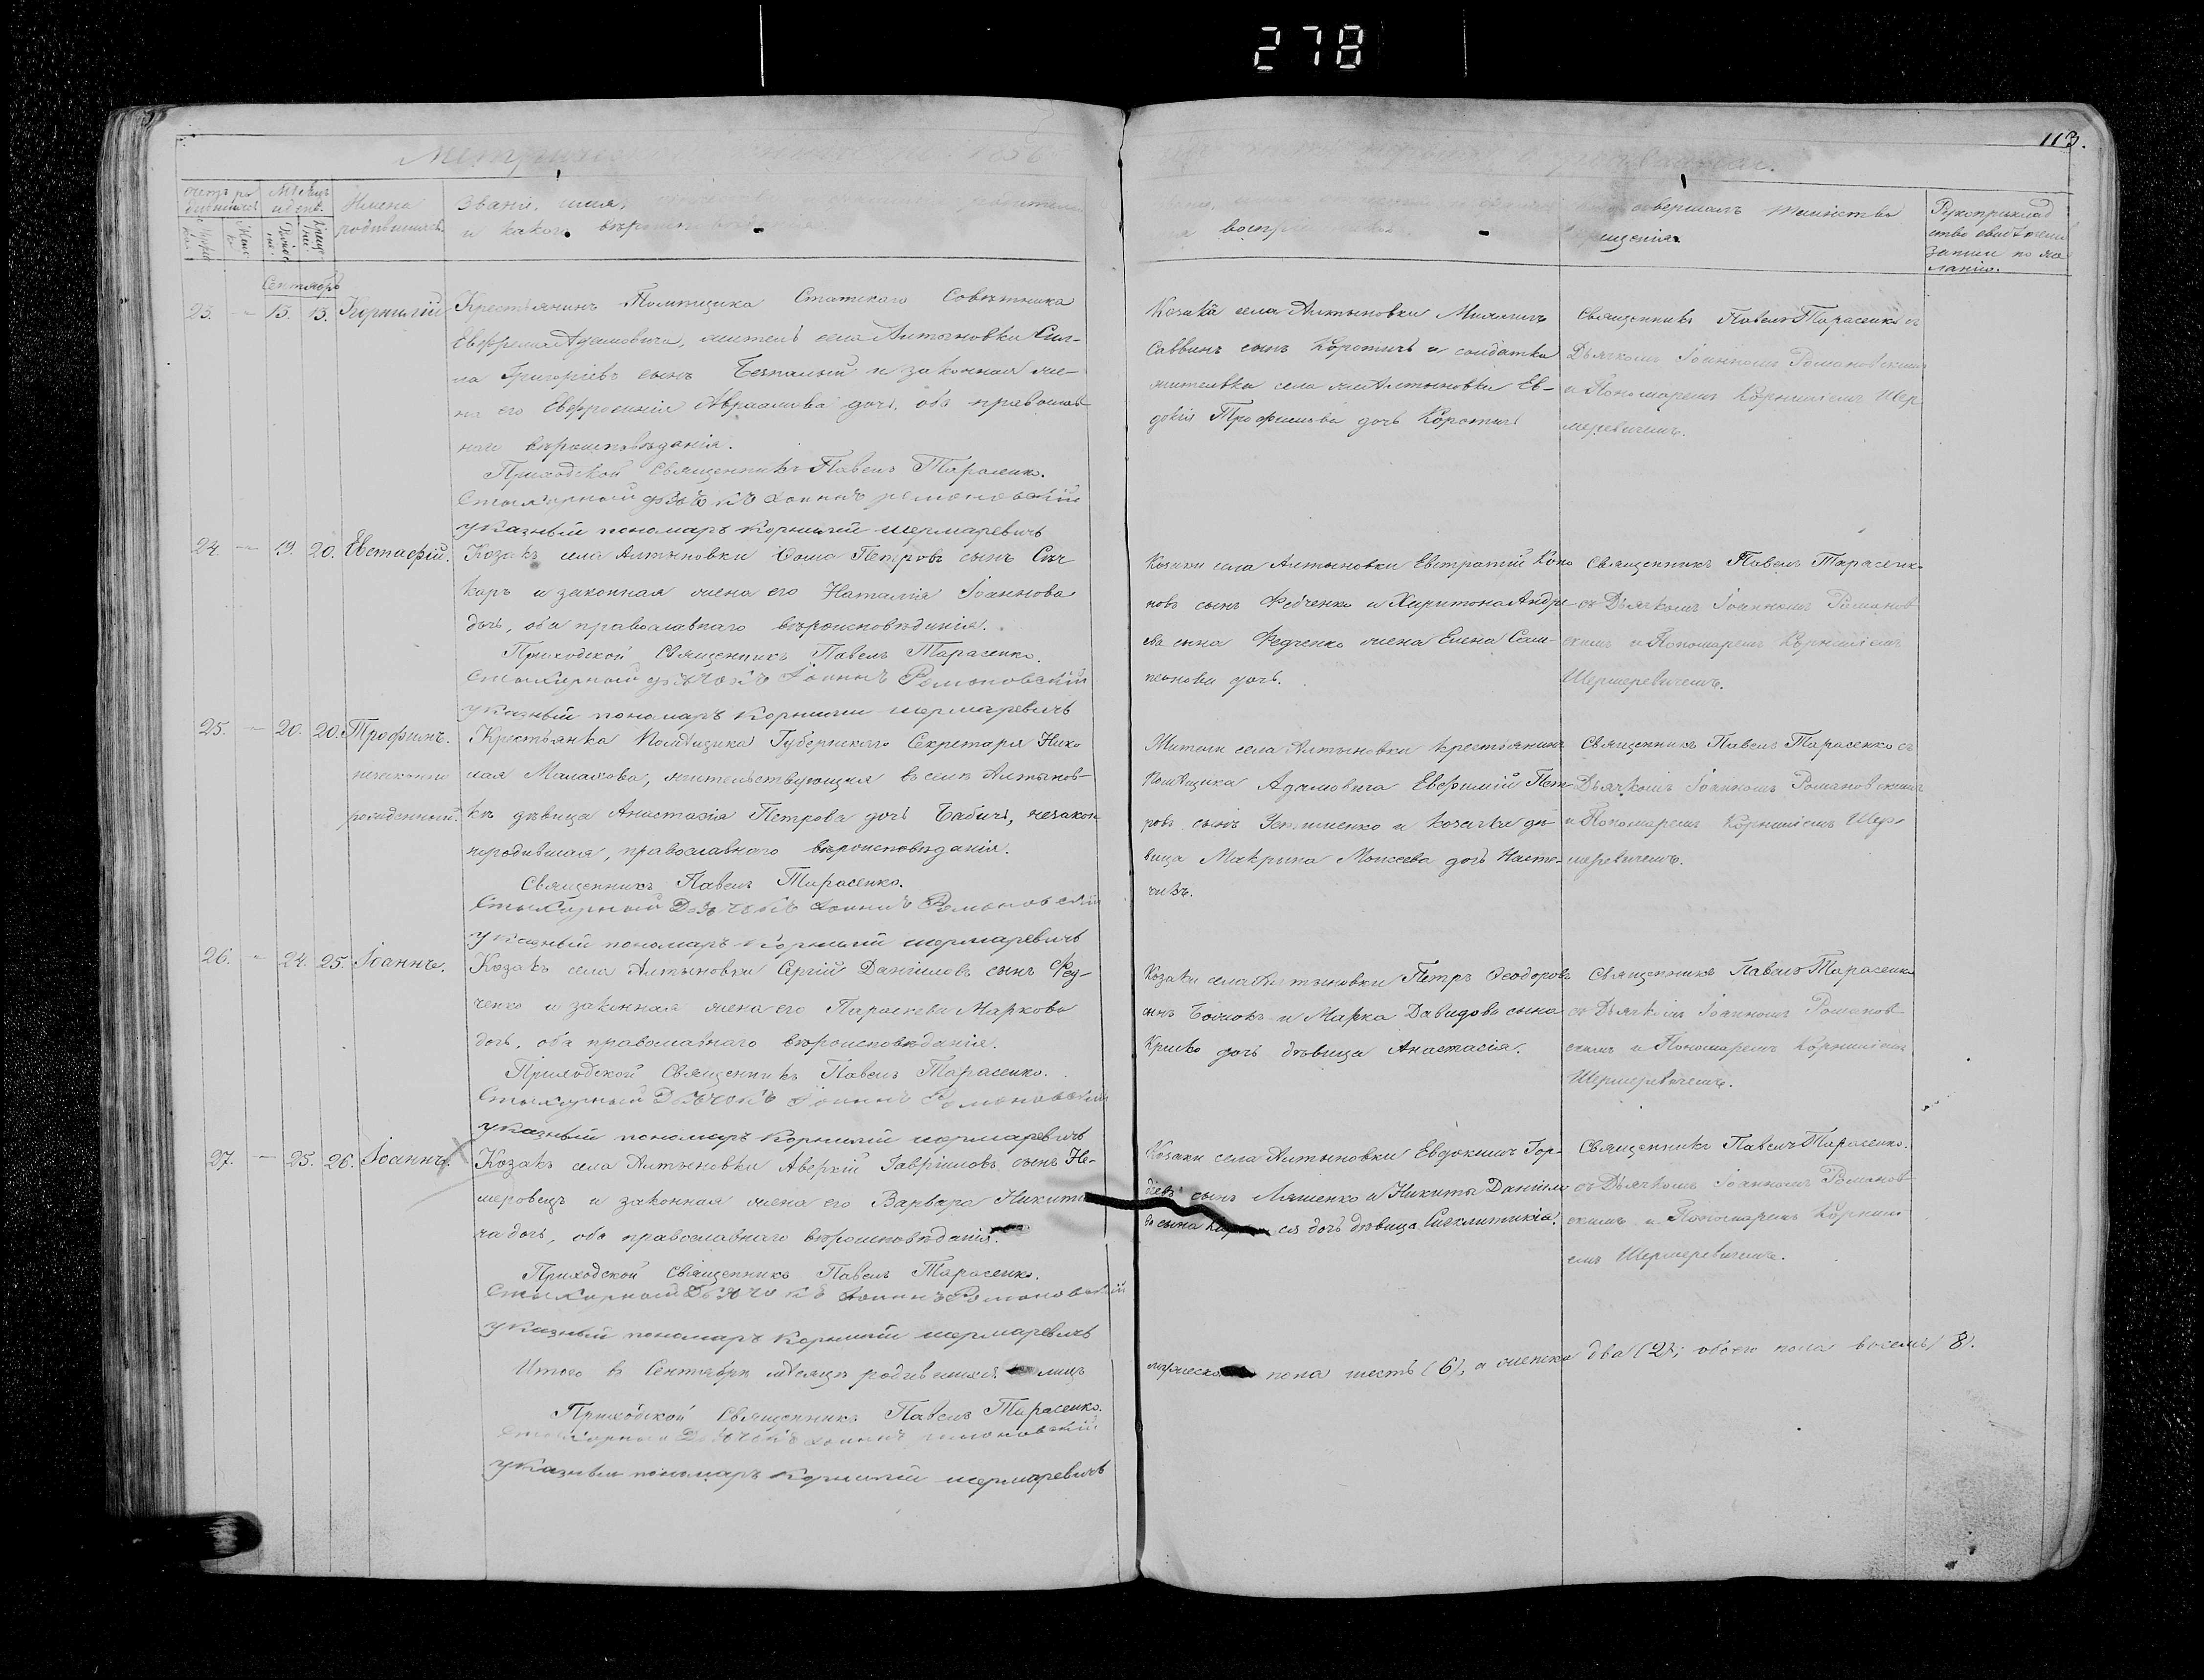 278
113.
Метрической
Счетъ ро
дившихся
Мѣсяцъ
и день.
Имена
родившихся
Званіе, имя,
и какого вѣро
воспр
совершалъ таинство
крещенія
Рукоприклад
ство свидѣтелей
записи по же
ланію.
Сентябрь
23. — 13. 13. Корнилій
Крестьянинъ Помѣщика Статскаго Совѣтника
Адамовича, житель села Алтыновки
Григоріевъ сынъ Безпалый и законная же-
на его Евфросинія Авраамова дочь, оба православ-
наго вѣроисповѣданія.
Приходской Священникъ Павелъ Тарасенко.
Стихарный дьячокъ Іоаннъ Романовскій
указный пономарь Корнилій шермаревичъ
Козакъ села Алтыновки
Саввинъ сынъ Коротичъ и солдатка
жителька села Алтыновки Ев-
докія Трофимова дочь Коротичъ
Священникъ Павелъ Тарасенко съ
Дьячкомъ Іоанномъ Романовскимъ
и Пономаремъ Корниліемъ Шер
меревичемъ.
24. — 19. 20. Евстафій.
Козакъ села Алтыновки Ѳома Петровъ сынъ Сач
каръ и законная жена его Наталія Іоаннова
дочь, оба православнаго вѣроисповѣданія.
Приходской Священникъ Павелъ Тарасенко.
Стихарный дьячокъ Іоаннъ Романовскій
указный пономарь Корнилій шермаревичъ
Козаки села Алтыновки Евстратій Коно
новъ сынъ Федченко и Харитона Андре-
ева сына Федченко жена Елена Сам-
псонова дочь.
Священникъ Павелъ Тарасенко
съ Дьячкомъ Іоанномъ Романов
скимъ и Пономаремъ Корниліемъ
Шермеревичемъ.
25. — 20. 20. Трофимъ.
незаконно
рожденный.
Крестьянка Помѣщика Губернскаго Секретаря Нико
лая Малахова, жительствующая въ селѣ Алтынов-
кѣ дѣвица Анастасія Петрова дочь Бабичъ, незакон
нородившая, православнаго вѣроисповѣданія.
Священникъ Павелъ Тарасенко.
Стихарный Дьячокъ Іоаннъ Романовскій
указный пономарь Корнилій шермаревичъ
Жители села Алтыновки крестьянинъ
Помѣщика Адамовича Евфимій Пет-
ровъ сынъ и козачка дѣ-
вица Макрина Моисеева дочь
Священникъ Павелъ Тарасенко съ
Дьячкомъ Іоанномъ Романовскимъ
и Пономаремъ Корниліемъ Шер
меревичемъ.
26. — 24. 25. Іоаннъ.
Козакъ села Алтыновки Сергій Даніиловъ сынъ Фед-
ченко и законная жена его Параскева Маркова
дочь, оба православнаго вѣроисповѣданія.
Приходской Священникъ Павелъ Тарасенко.
Стихарный Дьячокъ Іоаннъ Романовскій
указный пономарь Корнилій шермаревичъ
Козаки села Алтыновки Петръ Ѳеодоровъ
сынъ и Марка Давидова сына
дочь дѣвица Анастасія.
Священникъ Павелъ Тарасенко
съ Дьячкомъ Іоанномъ Романов
скимъ и Пономаремъ Корниліемъ
Шермеревичемъ.
27. — 25. 26. Іоаннъ.
Козакъ села Алтыновки Аверкій Гавріиловъ сынъ Не-
меровецъ и законная жена его Варвара Никити
на дочь, оба православнаго вѣроисповѣданія.
Приходской Священникъ Павелъ Тарасенко.
Стихарный Дьячокъ Іоаннъ Романовскій
указный пономарь Корнилій шермаревичъ
Козаки села Алтыновки Евдокимъ Гор-
деевъ сынъ Ляшенко и Никиты Даніило
ва сына дочь дѣвица Синклитикія.
Священникъ Павелъ Тарасенко.
съ Дьячкомъ Іоанномъ Романов-
скимъ и Пономаремъ Корнилі
емъ Шермеревичемъ.
Итого въ Сентябрѣ мѣсяцѣ родившихся лицъ
мужеска пола шесть (6), а женска два (2); обоего пола восемь (8).
Приходской Священникъ Павелъ Тарасенко.
Стихарный Дьячокъ Іоаннъ Романовскій
указный пономарь Корнилій шермаревичъ